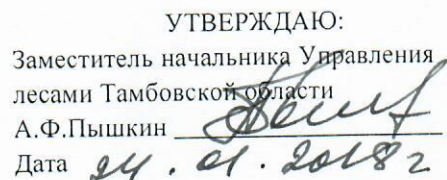 УТВЕРЖДАЮ:
Заместитель начальника Управления
лесами Тамбовской области
А.Ф.Пышкин
Дата 24.01.2018г